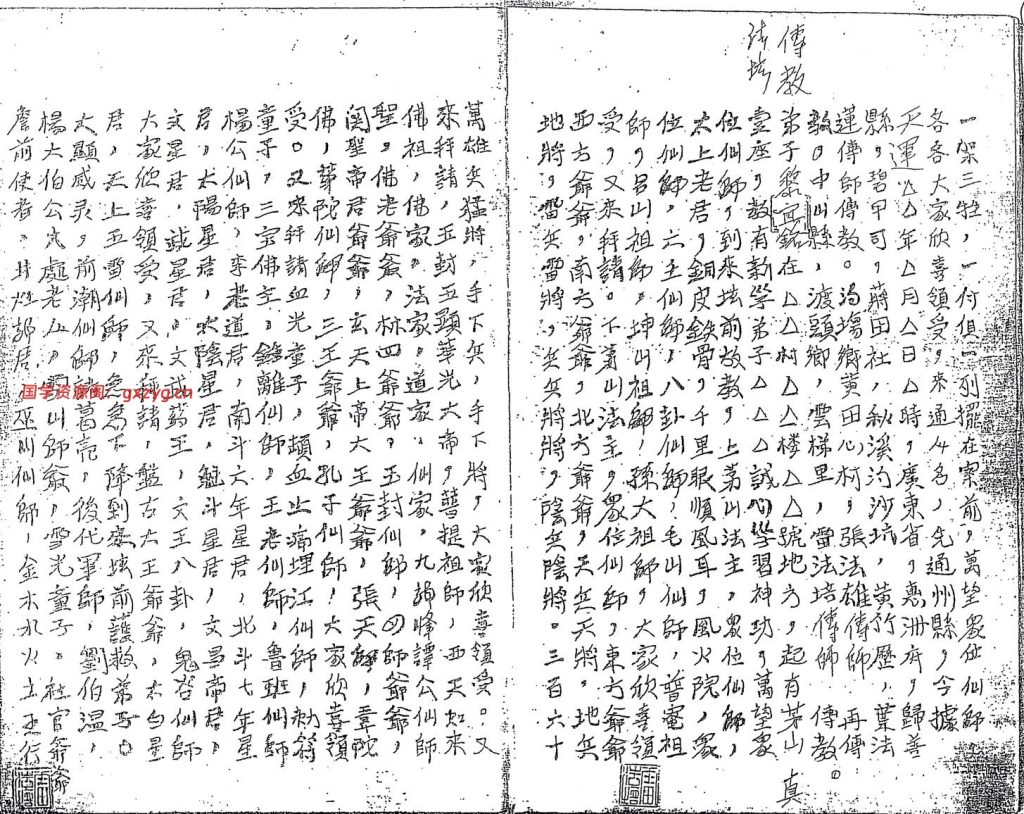 傳教
一架三牲，一付俱一列擺在案前，萬望眾位仙師
各各大家欣喜領受，來通人名，先通州縣，今據
天運△△年△月△日△時，廣東省，惠洲府，歸善
縣，碧甲司，蔣田社，秋溪沙坑，黃竹歷，葉法
蓮傳師傳教。鄉黃田心村，張法雄傳師，再傳
教。中山縣，渡頭鄉，雲梯里，雷法培傳師傳教
弟子黎銘在△△村△△楼△△號地方，起有茅山
壹座，教有新學弟子△△△誠心學習神功，萬望眾
位仙師，到來坛前放教，上茅山法主，眾位仙師，
太上老君，銅皮鉄骨，千里眼順風耳，風火院，眾
位仙師，六壬仙師，八卦仙師，毛山仙師，普庵祖
師，吕山祖師，坤山祖師，孫大祖師，大家欣喜領
受，又來拜請。下茅山法主，眾位仙師，東方爺爺
西方爺爺，南方爺爺，北方爺爺，天兵天將，地兵
地將，雷兵雷將，兵兵將將，陰兵陰將。三百六十
真
萬雄兵猛將，手下兵手下將，大家欣喜領受。又
來拜請，玉封五顯華光大帝，菩提祖師，西天如來
佛祖，佛家，法家，道家，仙家，九龍峰譚公仙師
聖，佛老爺爺，林四爺爺。玉封仙師，四師爺爺，
関聖帝君爺爺，玄天上帝大王爺爺，張天師，韋陀
佛，華陀仙師，三王爺爺，孔子仙師，大家欣喜領
受。又來拜請血光童子，頓血止痛埋江仙師，勑符
童子，三宝佛主，鐘離仙師，王老仙師，鲁班仙師
楊公仙師，李老道君，南斗六年星君，北斗七年星
君，太陽星君，太陰星君，魁斗星君，文昌帝君，
文星君，武星君，文武药王，文王八卦，鬼谷仙師
大家欣喜領受，又來拜請，盤古大王爺爺，太白星
君，天上五雷仙師，急急下降到來坛前護教弟子。
大顯威灵，前潮仙師諸葛亮，後代軍師，劉伯温，
楊大伯公，老仙，山師爺，雪光童子。社官爺爺
簷前使者。井灶部君，巫叫仙師，金木水火土五行
国学资源阁：gxzyg.cn